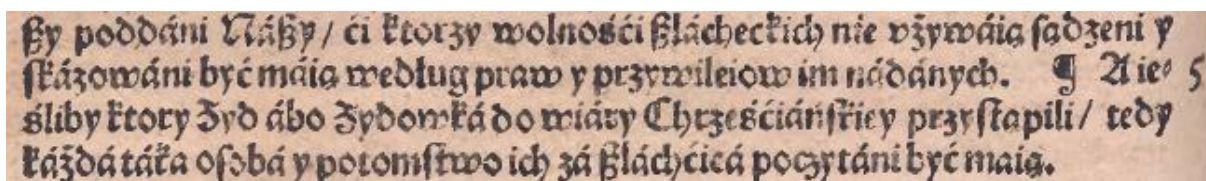 ßy poddáni Náßy / ći ktorzy wolnośći ßlácheckich nie vżywáią sądzeni y
skázowáni być máią według praw y przywileiow im nádánych. ¶ A ie⸗ 5
śliby ktory Żyd ábo Żydowká do wiáry Chrześćiáńskiey przystąpili / tedy
káżda táka osobá y potomstwo ich zá ßláchćicá poczytáni być maią.